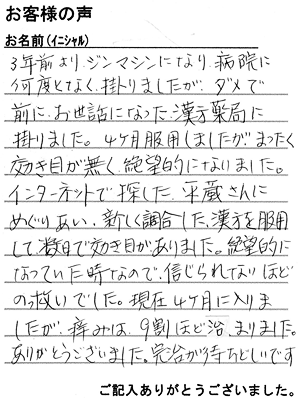 お客様の声
お名前(イニシャル)
3年前より、ジンマシンになり、病院に
何度となく、掛りましたが、ダメで
前に、お世話になった、漢方薬局に
掛りました。4ヶ月服用しましたが、まったく
効き目が無く、絶望的になりました。
インターネットで探した、平蔵さんに
めぐりあい、新しく調合した、漢方を服用
して、数日で効き目がありました。絶望的に
なっていた時なので、信じられないほど
の思いでした。現在4ヶ月に入りま
したが、痒みは、9割ほど治まりました。
ありがとうございました。完治が待ちどしいです
ご記入ありがとうございました。